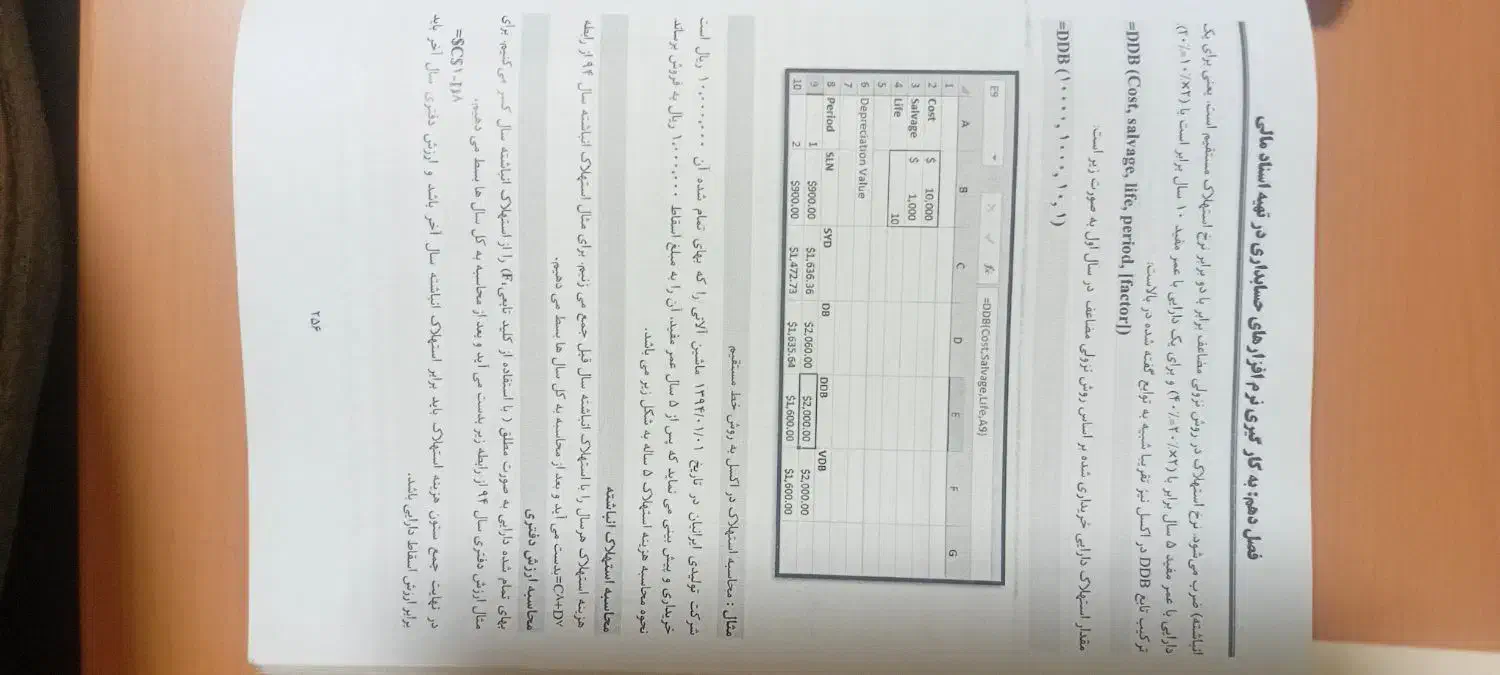 فصل دهم: به کار گیری نرم افزارهای حسابداری در تهیه اسناد مالی
انباشته) ضرب می‌شود. نرخ استهلاک در روش نزولی مضاعف برابر با دو برابر نرخ استهلاک مستقیم است، یعنی برای یک
دارایی با عمر مفید ۵ سال برابر با (۴۰٪=۲۰٪×۲) و برای یک دارایی با عمر مفید ۱۰ سال برابر است با (۲۰٪=۱۰٪×۲).
ترکیب تابع DDB در اکسل نیز تقریبا شبیه به توابع گفته شده در بالاست:
=DDB (Cost, salvage, life, period, [factor])
مقدار استهلاک دارایی خریداری شده بر اساس روش نزولی مضاعف در سال اول به صورت زیر است:
=DDB (۱۰۰۰۰, ۱۰۰۰, ۱۰, ۱)
E9 fx =DDB(Cost,Salvage,Life,A9)
A B C D E F G
1
2 Cost $ 10,000
3 Salvage $ 1,000
4 Life 10
5
6 Depreciation Value
7
8 Period SLN SYD DB DDB VDB
9 1 $900.00 $1,636.36 $2,060.00 $2,000.00 $2,000.00
10 2 $900.00 $1,472.73 $1,635.64 $1,600.00 $1,600.00
مثال : محاسبه استهلاک در اکسل به روش خط مستقیم
شرکت تولیدی ایرانیان در تاریخ ۱۳۹۴/۰۱/۰۱ ماشین آلاتی را که بهای تمام شده آن ۱۰،۰۰۰،۰۰۰ ریال است
خریداری و پیش بینی می نماید که پس از ۵ سال عمر مفید، آن را به مبلغ اسقاط ۱،۰۰۰،۰۰۰ ریال به فروش برساند.
نحوه محاسبه هزینه استهلاک ۵ ساله به شکل زیر می باشد.
محاسبه استهلاک انباشته
هزینه استهلاک هرسال را با استهلاک انباشته سال قبل جمع می زنیم. برای مثال استهلاک انباشته سال ۹۴ از رابطه
=C۸+D۷ بدست می آید و بعد از محاسبه به کل سال ها بسط می دهیم.
محاسبه ارزش دفتری
بهای تمام شده دارایی به صورت مطلق ( با استفاده از کلید تابعی F۴) را از استهلاک انباشته سال کسر می کنیم. برای
مثال ارزش دفتری سال ۹۴ از رابطه زیر بدست می آید و بعد از محاسبه به کل سال ها بسط می دهیم.
=$C$۱-D۸
در نهایت جمع ستون هزینه استهلاک باید برابر استهلاک انباشته سال آخر باشد و ارزش دفتری سال آخر باید
برابر ارزش اسقاط دارایی باشد.
۲۵۶